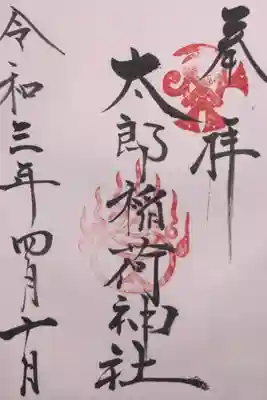 奉拝
太郎稲荷神社
令和三年四月十日